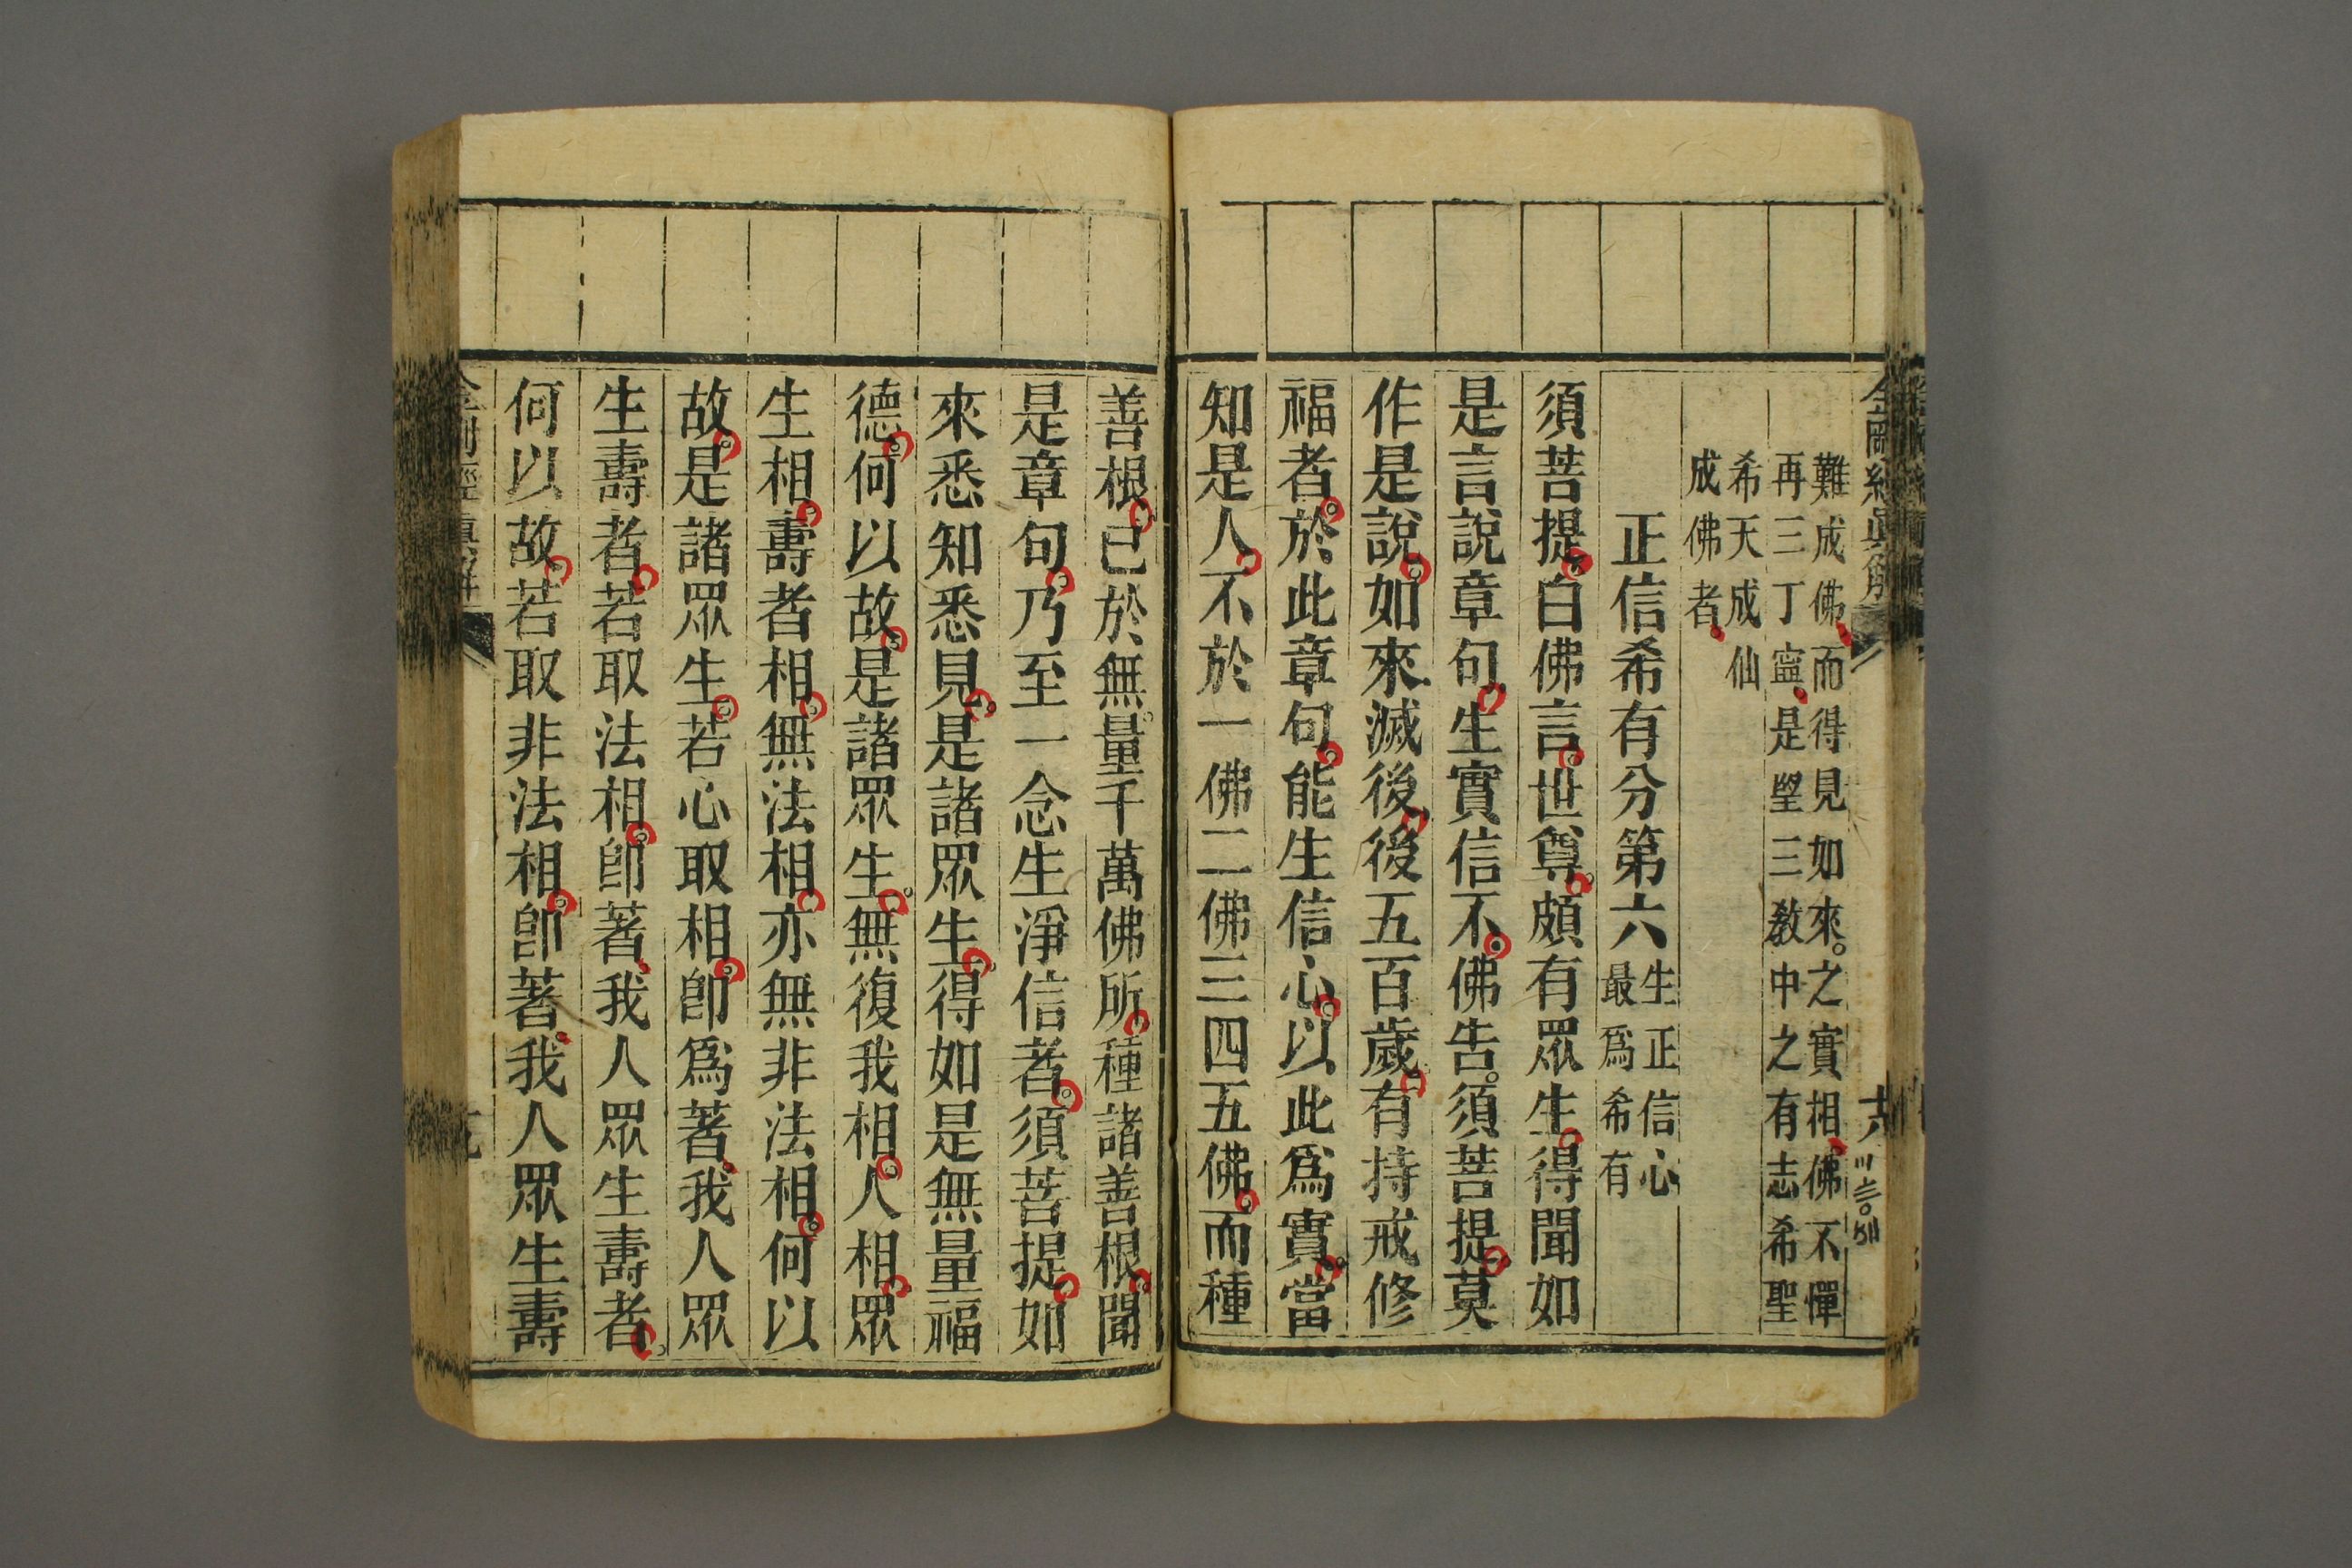 金剛經眞解
難成佛而得見如來。之實相佛不憚
再三丁寧是望三教中之有志希聖
希天成仙
成佛者
正信希有分第六
生正信心
最爲希有
須菩提白佛言世尊頗有眾生得聞如
是言說章句生實信不佛告。須菩提莫
作是說如來滅後後五百歲有持戒修
福者於此章句能生信心以此爲實當
知是人不於一佛二佛三四五佛而種
善根已於無量千萬佛所種諸善根聞
是章句乃至一念生淨信者須菩提如
來悉知悉見是諸眾生得如是無量福
德何以故是諸眾生無復我相人相眾
生相壽者相無法相亦無非法相何以
故是諸眾生若心取相卽爲著我人眾
生壽者若取法相卽著我人眾生壽者
何以故若取非法相卽著我人眾生壽